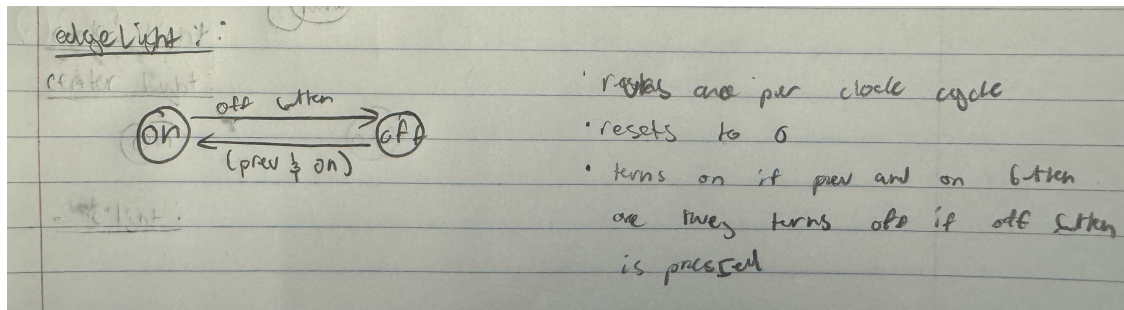 edgeLight:
center light
off button
on
off
(prev & on)
· resets once per clock cycle
· resets to 0
· turns on if prev and on button
are true, turns off if off button
is pressed